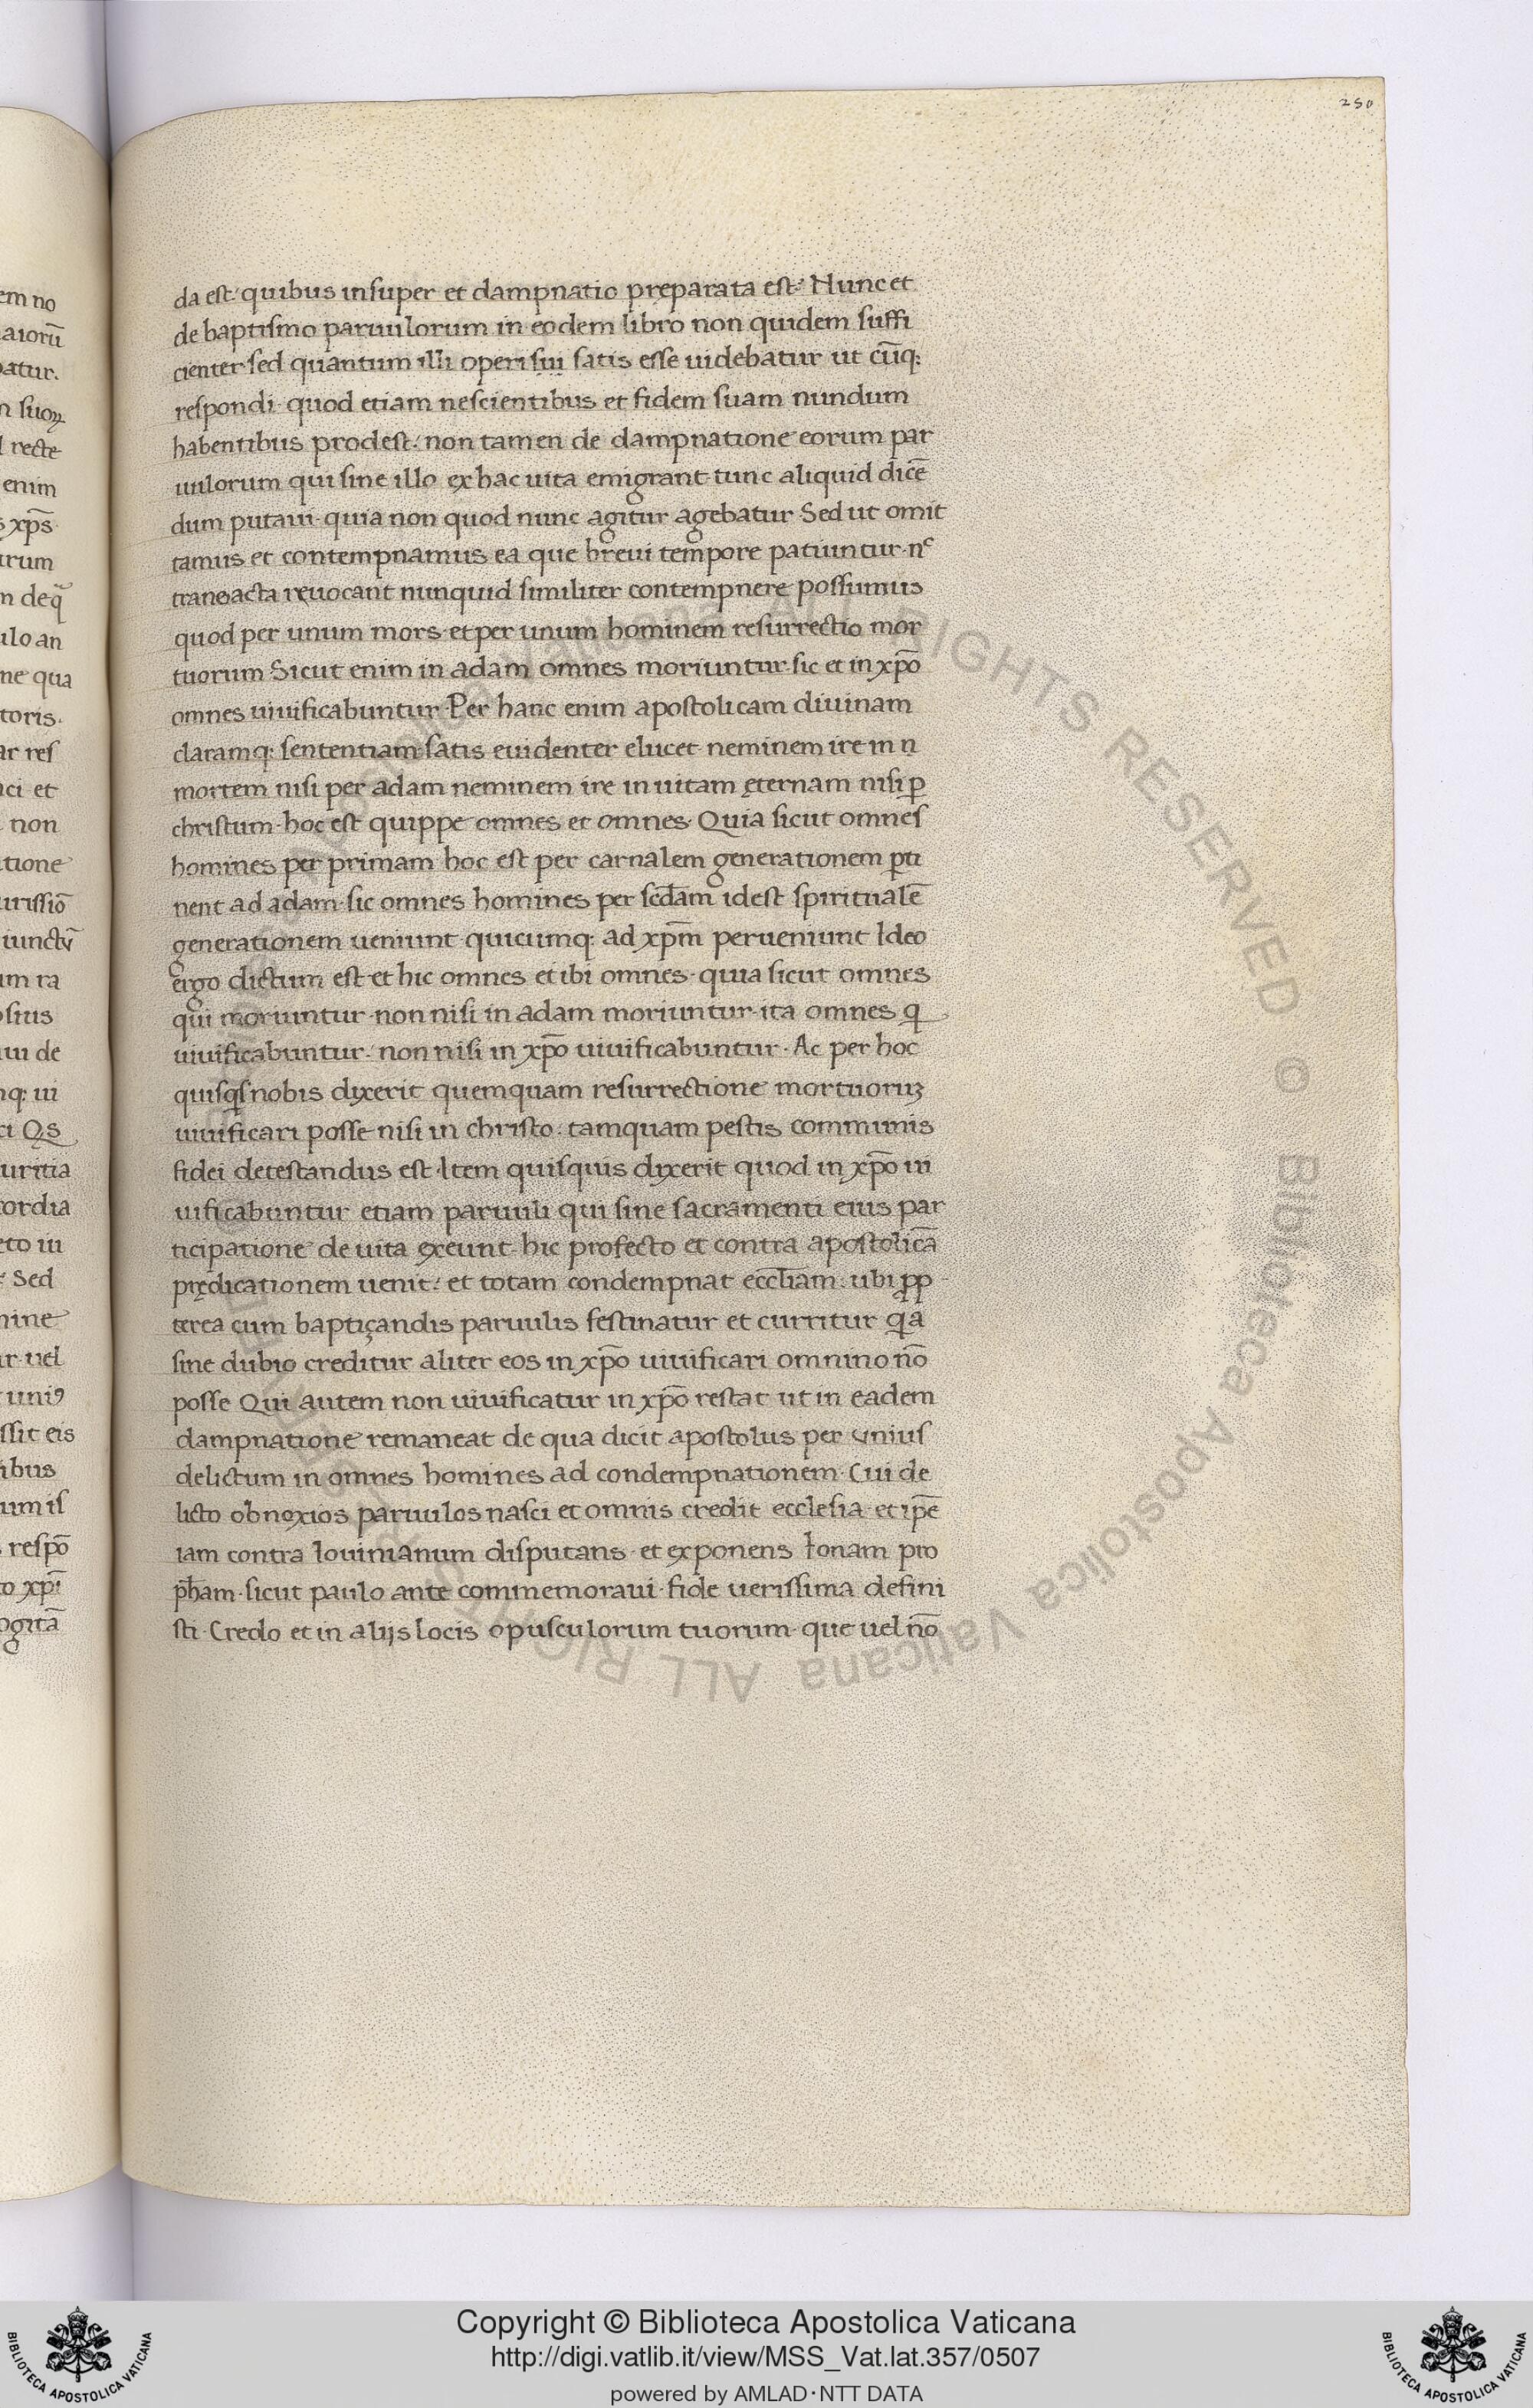 250
em no
aiorū
atur.
n suoꝝ
recte
enim
xp̄s
arum
n deq̄
ulo an
ne qua
toris.
ar res
ci et
non
tione
urissiō
iunctꝰ
um ra
osius
ui de
q: ui
ci Qs
uritia
cordia
eto ui
Sed
nine
ur uel
uniꝰ
ssit eis
ibus
um is
respō
o xp̄i
ogitā
da est: quibus insuper et dampnatio preparata est? Nunc et
de baptismo paruulorum in eodem libro non quidem suffi
cienter sed quantum illi operi sui satis esse uidebatur ut cūq:
respondi· quod etiam nescientibus et fidem suam nundum
habentibus prodest: non tamen de dampnatione eorum par
uulorum qui sine illo ex hac uita emigrant tunc aliquid dicē
dum putaui· quia non quod nunc agitur agebatur· Sed ut omit
tamus et contempnamus ea que breui tempore patiuntur· nᶜ
transacta reuocant nunquid similiter contempnere possumus
quod per unum mors· et per unum hominem resurrectio mor
tuorum· Sicut enim in adam omnes moriuntur· sic et in xp̄o
omnes uiuificabuntur· Per hanc enim apostolicam diuinam
claramq: sententiam satis euidenter elucet neminem ire in n
mortem nisi per adam neminem ire in uitam ęternam nisi ꝑ
christum· hoc est quippe omnes et omnes· Quia sicut omnes
homines per primam hoc est per carnalem generationem ꝑti
nent ad adam· sic omnes homines per scd̄am idest spiritualē
generationem ueniunt quicumq: ad xp̄m perueniunt Ideo
ergo dictum est et hic omnes et ibi omnes· quia sicut omnes
qui moriuntur· non nisi in adam moriuntur· ita omnes q
uiuificabuntur: non nisi in xp̄o uiuificabuntur· Ac per hoc
quisqs nobis dixerit quemquam resurrectione mortuoruꝫ
uiuificari posse nisi in christo: tamquam pestis communis
fidei detestandus est· Item quisquis dixerit quod in xp̄o ui
uificabuntur etiam paruuli qui sine sacramenti eius par
ticipatione de uita exeunt· hic profecto et contra apostolicā
prędicationem uenit: et totam condempnat eccl̄iam: ubi ꝓp
terea cum baptiçandis paruulis festinatur et curritur qa
sine dubio creditur aliter eos in xp̄o uiuificari omnino nō
posse Qui autem non uiuificatur in xp̄o restat ut in eadem
dampnatione remaneat de qua dicit apostolus per unius
delictum in omnes homines ad condempnationem· Cui de
licto obnoxios paruulos nasci et omnis credit ecclesia· et ip̄e
iam contra Iouinianum disputans· et exponens Ionam pro
ph̄am· sicut paulo ante commemoraui· fide uerissima defini
sti· Credo et in alijs locis opusculorum tuorum· que uel nō
Biblioteca Apostolica Vaticana ALL RIGHTS RESERVED ©
Copyright © Biblioteca Apostolica Vaticana
http://digi.vatlib.it/view/MSS_Vat.lat.357/0507
powered by AMLAD·NTT DATA
BIBLIOTECA APOSTOLICA VATICANA
BIBLIOTECA APOSTOLICA VATICANA